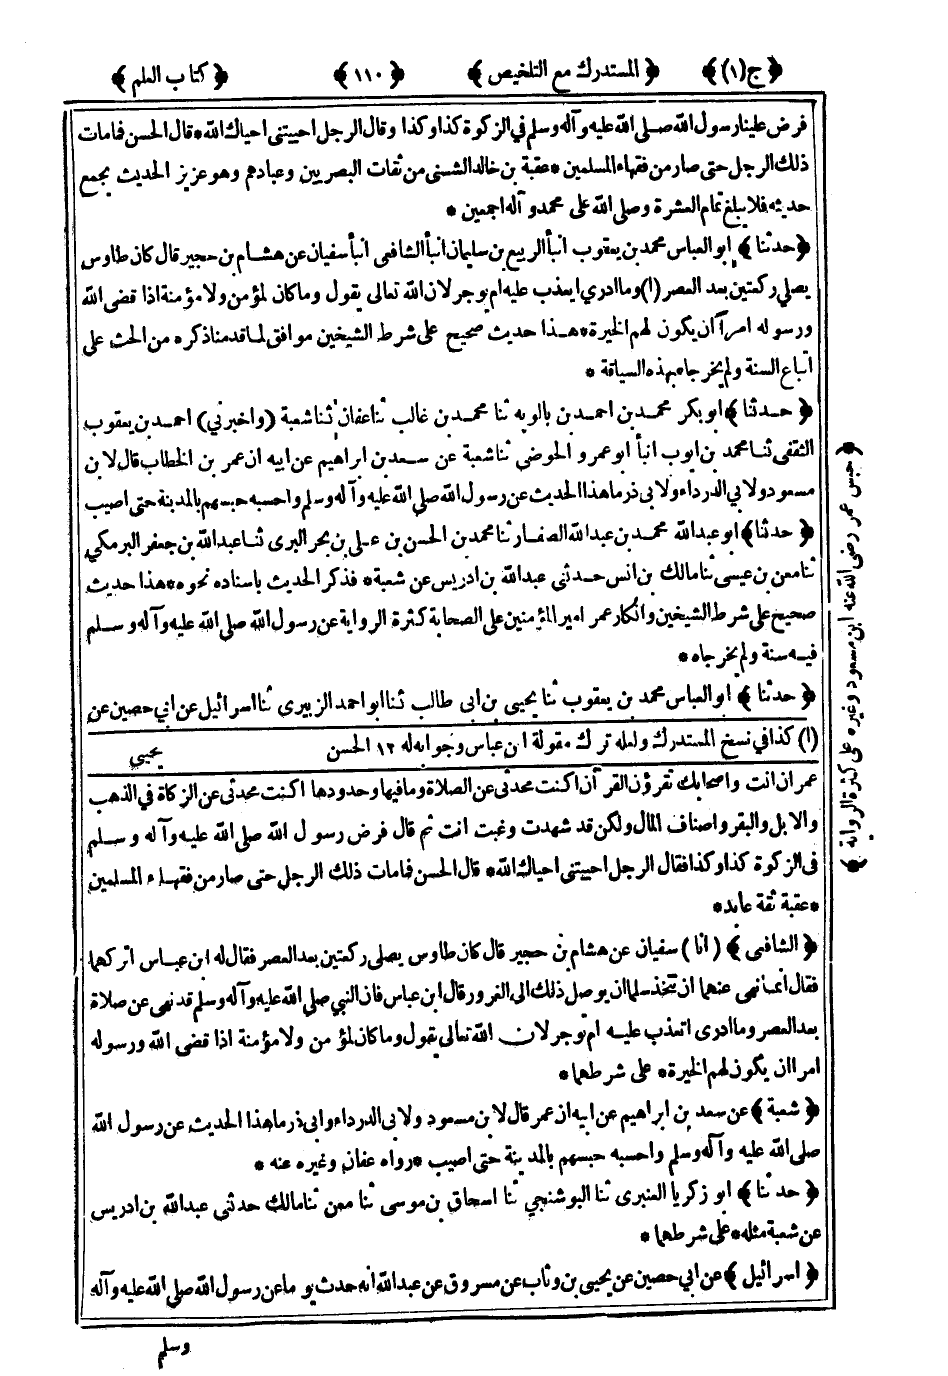 ﴿ ج (١) ﴾ ﴿ المستدرك مع التلخيص ﴾ ﴿ ١١٠ ﴾ ﴿ كتاب العلم ﴾
فرض علينا رسول الله صلى الله عليه وآله وسلم في الزكوة كذا وكذا وقال الرجل احييتنى احياك الله * قال الحسن فما مات
ذلك الرجل حتى صار من فقهاء المسلمين * عقبة بن خالد الشنى من ثقات البصريين وعبادهم وهو عزيز الحديث يجمع
حديثه فلا يبلغ تمام العشرة وصلى الله على محمد وآله اجمعين *
﴿ حدثنا ﴾ ابو العباس محمد بن يعقوب انبأ الربيع بن سليمان انبأ الشافعى انبأ سفيان عن هشام بن حجير قال كان طاوس
يصلي ركعتين بعد العصر (١) وما ادري ايعذب عليه ام يوجر لان الله تعالى يقول وما كان لمؤمن ولا مؤمنة اذا قضى الله
ورسوله امراً ان يكون لهم الخيرة * هذا حديث صحيح على شرط الشيخين موافق لما قدمنا ذكره من الحث على
اتباع السنة ولم يخرجاه بهذه السياقة *
﴿ حدثنا ﴾ ابو بكر محمد بن احمد بن بالويه ثنا محمد بن غالب ثنا عفان ثنا شعبة (واخبرني) احمد بن يعقوب
الثقفى ثنا محمد بن ايوب انبأ ابو عمرو الحوضي ثنا شعبة عن سعد بن ابراهيم عن ابيه ان عمر بن الخطاب قال لابن
مسعود ولابي الدرداء ولابي ذر ما هذا الحديث عن رسول الله صلى الله عليه وآله وسلم واحسبه حبسهم بالمدينة حتى اصيب
﴿ حدثنا ﴾ ابو عبدالله محمد بن عبدالله الصفار ثنا محمد بن الحسن بن علي بن بحر البرى ثنا عبدالله بن جعفر البرمكي
ثنا معن بن عيسى ثنا مالك بن انس حدثنى عبدالله بن ادريس عن شعبة * فذكر الحديث باسناده نحوه * هذا حديث
صحيح على شرط الشيخين وانكار عمر امير المؤمنين على الصحابة كثرة الرواية عن رسول الله صلى الله عليه وآله وسلم
فيه سنة ولم يخرجاه *
﴿ حدثنا ﴾ ابو العباس محمد بن يعقوب ثنا يحيى بن ابى طالب ثنا ابو احمد الزبيرى ثنا اسرائيل عن ابي حصين عن
(١) كذا في نسخ المستدرك ولعله ترك مقولة ابن عباس وجوابه له ١٢ الحسن
يحيى
عمران انت واصحابك تقرؤن القرآن اكنت محدثى عن الصلاة وما فيها وحدودها اكنت محدثى عن الزكاة في الذهب
والابل والبقر واصناف المال ولكن قد شهدت وغبت انت ثم قال فرض رسول الله صلى الله عليه وآله وسلم
فى الزكوة كذا وكذا فقال الرجل احييتنى احياك الله * قال الحسن فما مات ذلك الرجل حتى صار من فقهاء المسلمين
* عقبة ثقة عابد *
﴿ الشافعى ﴾ (انا) سفيان عن هشام بن حجير قال كان طاوس يصلى ركعتين بعد العصر فقال له ابن عباس اتركهما
فقال انما نهى عنهما ان تتخذ سلما ان يوصل ذلك الى الغرور قال ابن عباس فان النبي صلى الله عليه وآله وسلم قد نهى عن صلاة
بعد العصر وما ادرى اتعذب عليه ام توجر لان الله تعالى يقول وما كان لمؤمن ولا مؤمنة اذا قضى الله ورسوله
امرا ان يكون لهم الخيرة * على شرطهما *
﴿ شعبة ﴾ عن سعد بن ابراهيم عن ابيه ان عمر قال لابن مسعود ولابي الدرداء وابى ذر ما هذا الحديث عن رسول الله
صلى الله عليه وآله وسلم واحسبه حبسهم بالمدينة حتى اصيب * رواه عفان وغيره عنه *
﴿ حدثنا ﴾ ابو زكريا العنبرى ثنا البوشنجي ثنا اسحاق بن موسى ثنا معن ثنا مالك حدثنى عبدالله بن ادريس
عن شعبة مثله * على شرطهما *
﴿ اسرائيل ﴾ عن ابي حصين عن يحيى بن وثاب عن مسروق عن عبدالله انه حدث يوما عن رسول الله صلى الله عليه وآله
وسلم
﴿ حبس عمر رضى الله عنه ابن مسعود وغيره على كثرة الرواية ﴾